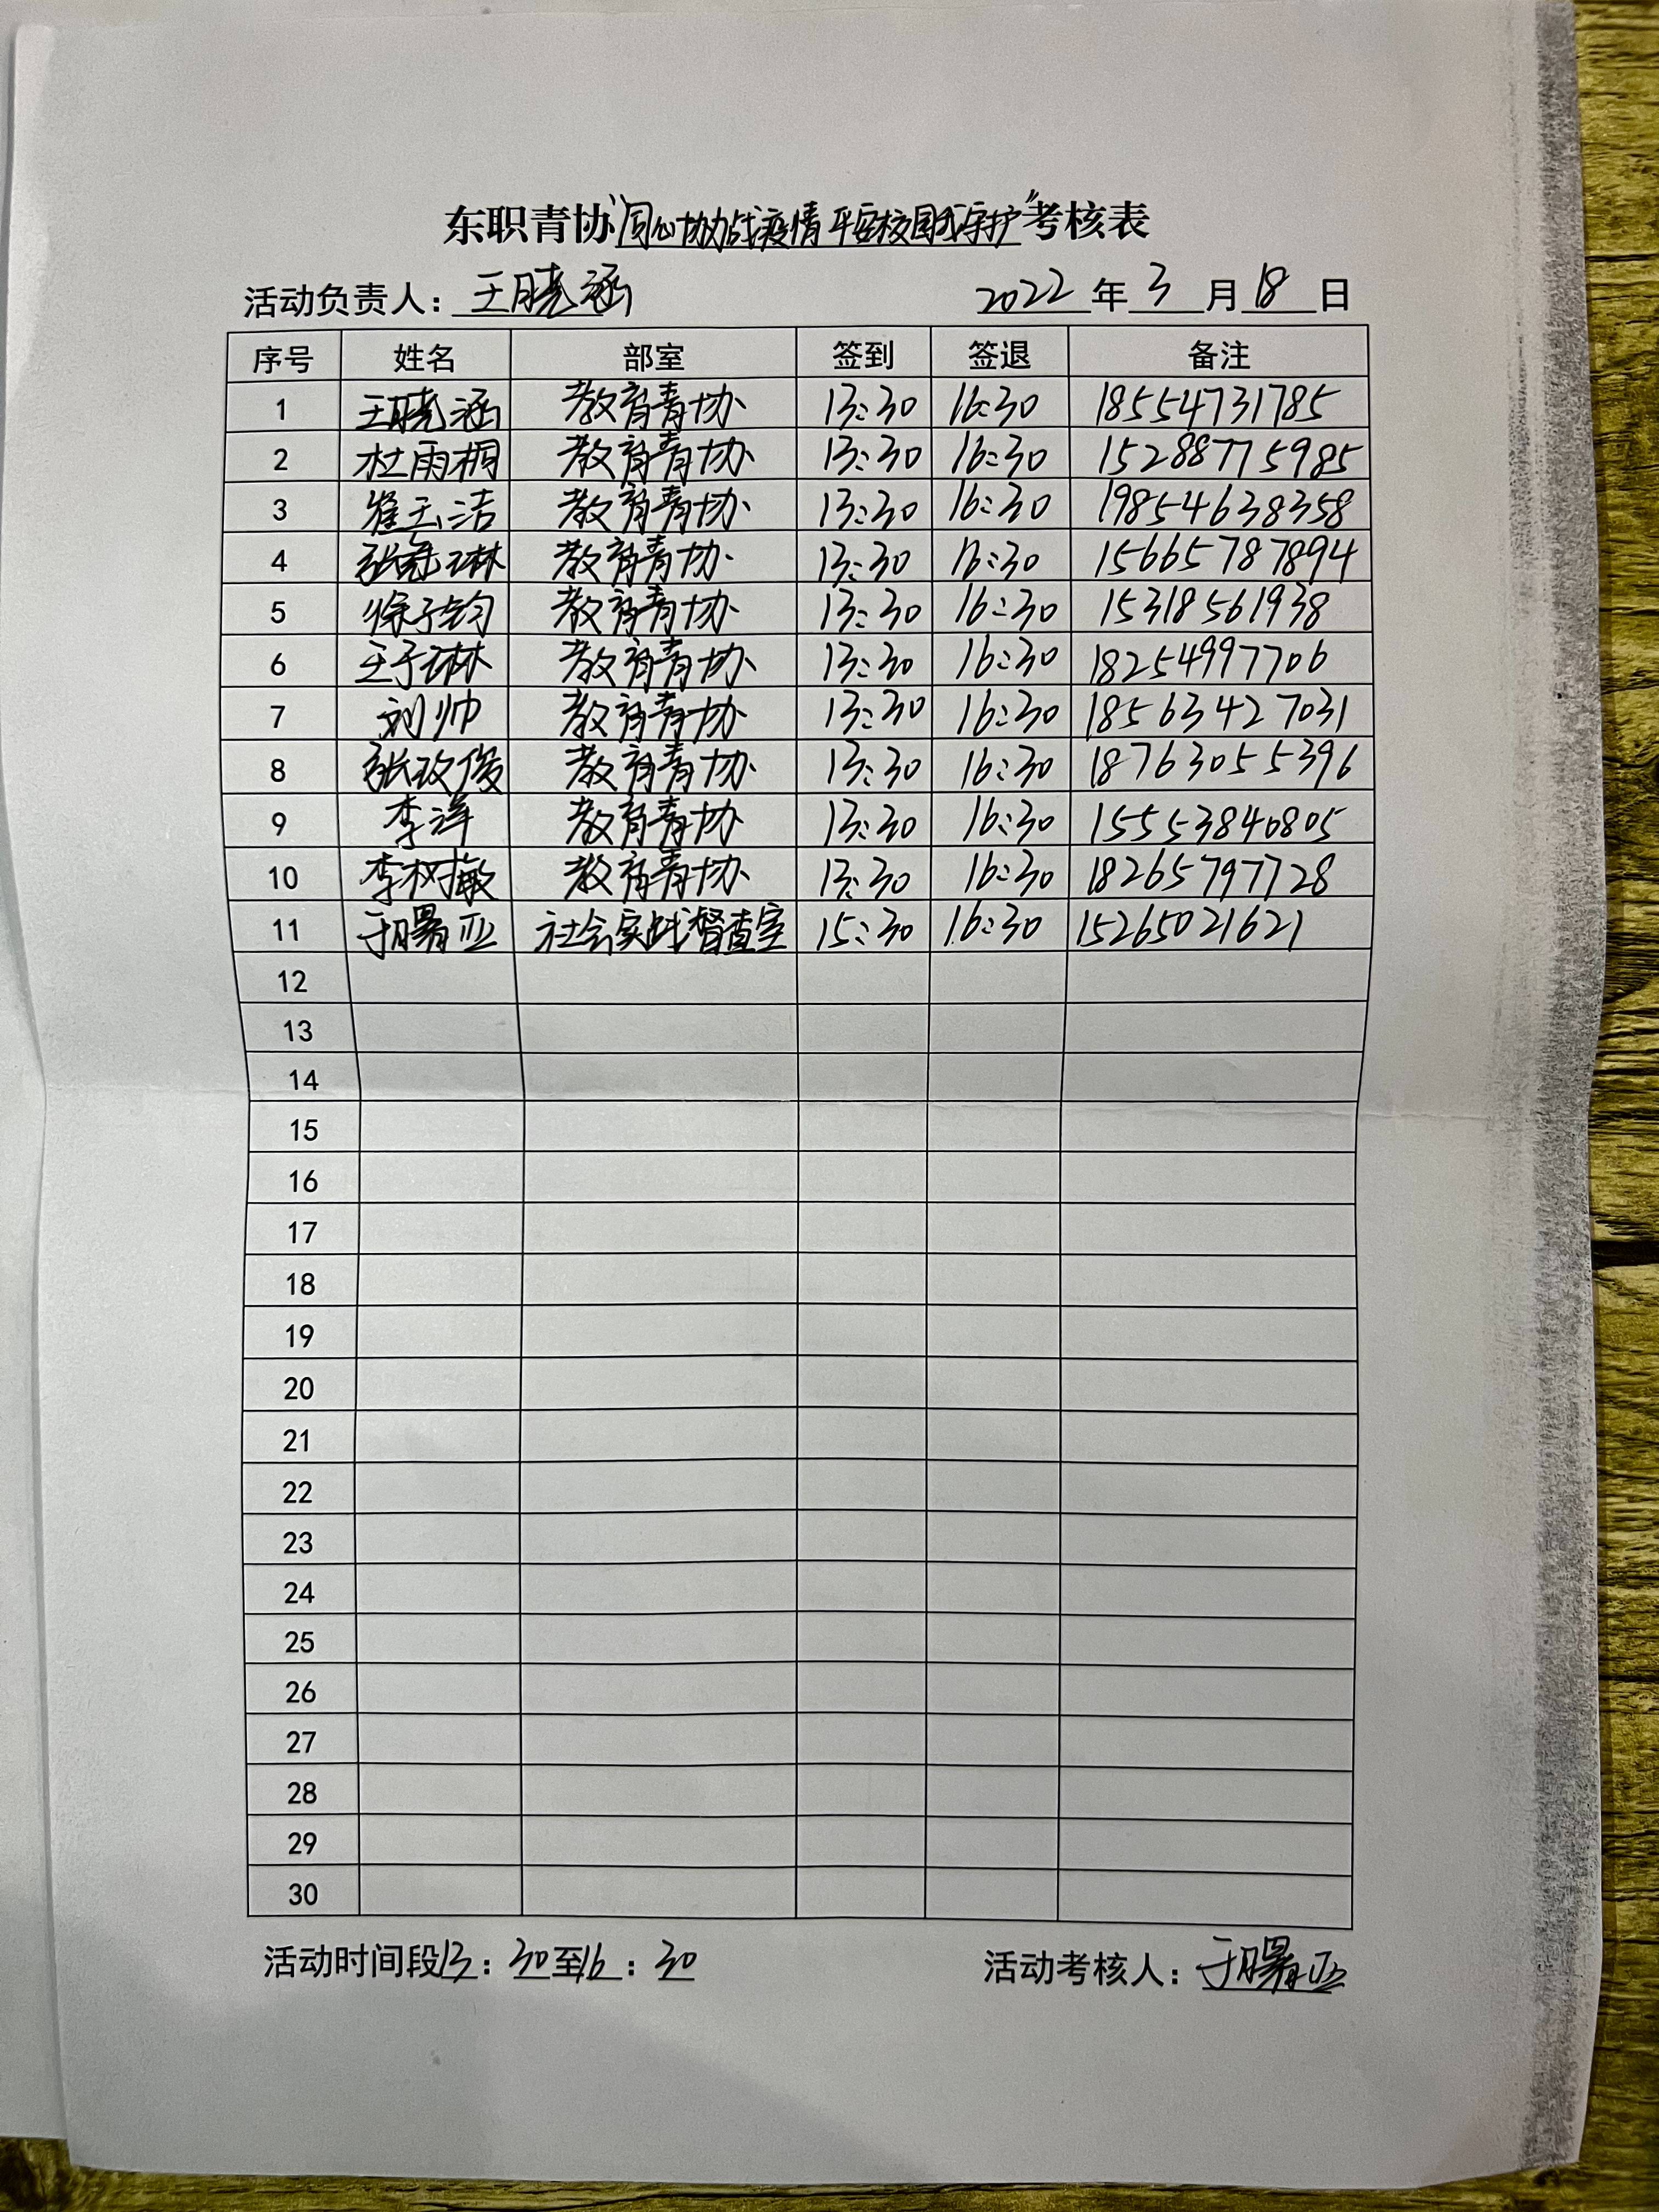 东职青协“同心协力战疫情 平安校园我守护”考核表
活动负责人：王晓涵 2022年3月18日
序号 姓名 部室 签到 签退 备注
1 王晓涵 教育青协 13:30 16:30 18554731785
2 杜雨桐 教育青协 13:30 16:30 15288775985
3 崔玉洁 教育青协 13:30 16:30 19854638358
4 教育青协 13:30 16:30 15665787894
5 徐子钧 教育青协 13:30 16:30 15318561938
6 王予琳 教育青协 13:30 16:30 18254997706
7 刘帅 教育青协 13:30 16:30 18563427031
8 张玫俊 教育青协 13:30 16:30 18763055396
9 李洋 教育青协 13:30 16:30 15553840805
10 李树敏 教育青协 13:30 16:30 18265797728
11 于曙亚 社会实践督查室 15:30 16:30 15265021621
12
13
14
15
16
17
18
19
20
21
22
23
24
25
26
27
28
29
30
活动时间段13：30至16：30 活动考核人：于曙亚